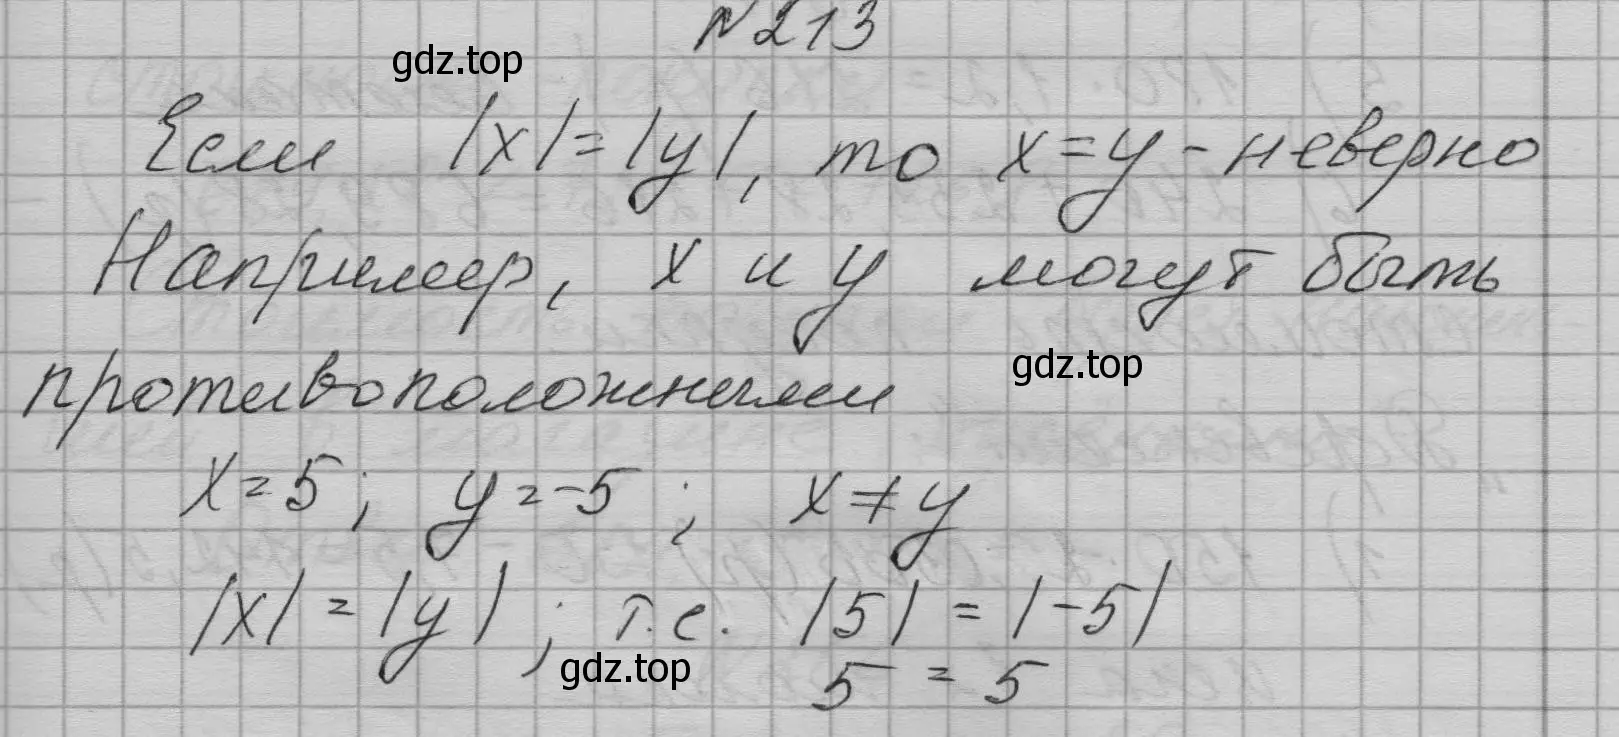 №213
gdz.top
Если |x|=|y|, то x=y - неверно
Например, x и y могут быть
gdz.top
противоположными
x=5; y=-5; x≠y
|x|=|y|; т.е. |5|=|-5|
gdz.top
5=5